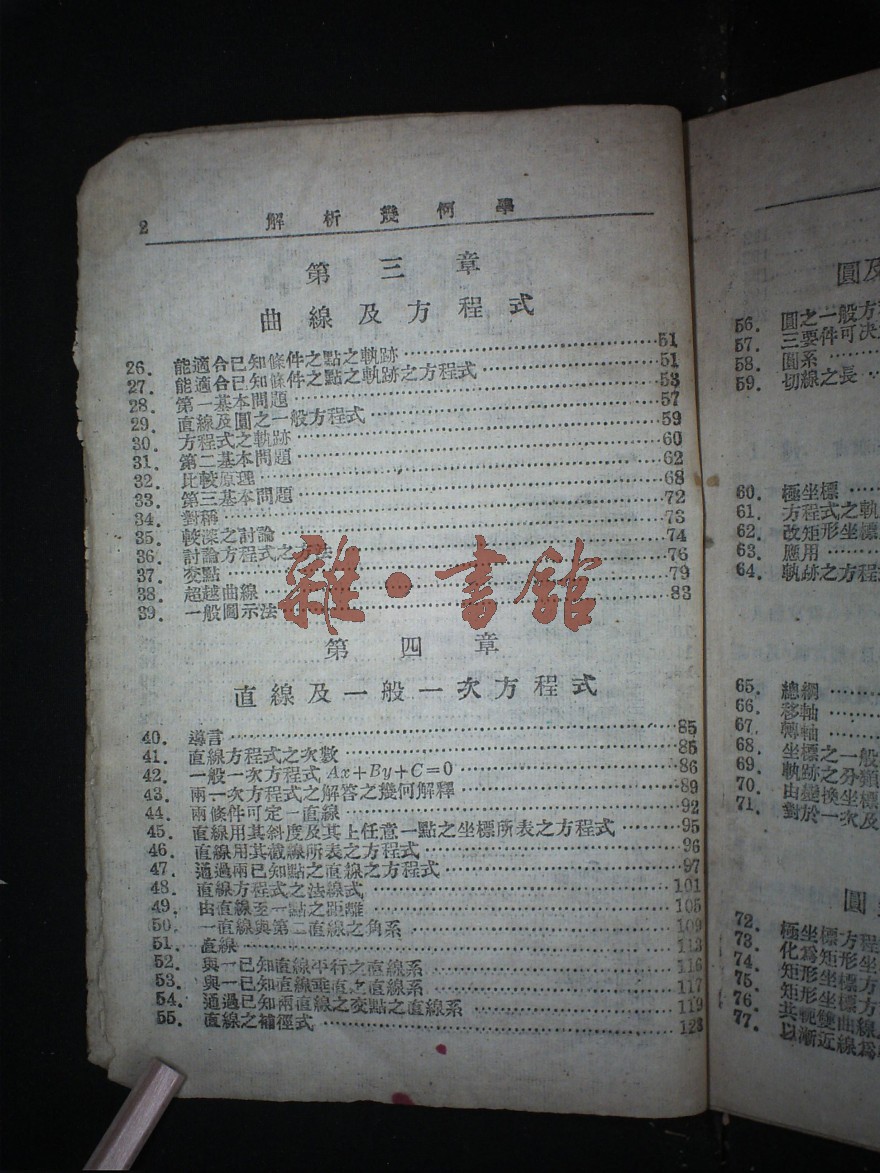 2 解析幾何學
第三章
曲線及方程式
26. 能適合已知條件之點之軌跡 51
27. 能適合已知條件之點之軌跡之方程式 51
28. 第一基本問題 53
29. 直線及圓之一般方程式 57
30. 方程式之軌跡 59
31. 第二基本問題 60
32. 比較原理 62
33. 第三基本問題 68
34. 對稱 72
35. 較深之討論 73
36. 討論方程式之方法 74
37. 交點 76
38. 超越曲線 79
39. 一般圖示法 83
雜·書館
第四章
直線及一般一次方程式
40. 導言 85
41. 直線方程式之次數 85
42. 一般一次方程式 Ax+By+C=0 86
43. 兩一次方程式之解答之幾何解釋 89
44. 兩條件可定一直線 92
45. 直線用其斜度及其上任意一點之坐標所表之方程式 95
46. 直線用其截線所表之方程式 96
47. 通過兩已知點之直線之方程式 97
48. 直線方程式之法線式 101
49. 由直線至一點之距離 105
50. 一直線與第二直線之角系 109
51. 直線 113
52. 與一已知直線平行之直線系 116
53. 與一已知直線垂直之直線系 117
54. 通過已知兩直線之交點之直線系 119
55. 直線之補徑式 123
圓及
56. 圓之一般方
57. 三要件可決
58. 圓系
59. 切線之長
60. 極坐標
61. 方程式之軌
62. 改矩形坐標
63. 應用
64. 軌跡之方程
65. 總綱
66. 移軸
67. 轉軸
68. 坐標之一般
69. 軌跡之分類
70. 由變換坐標
71. 對於一次及
圓
72. 極坐標方程
73. 化為矩形坐
74. 矩形坐標方
75. 矩形坐標方
76. 共軛雙曲線
77. 以漸近線為